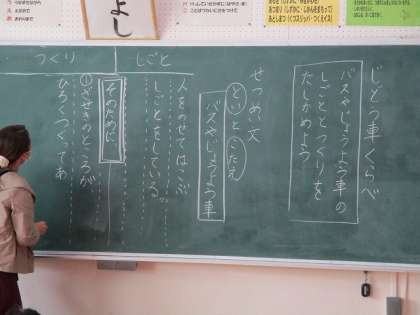 じどう車くらべ
バスやじょうよう車の
しごととつくりを
たしかめよう
せつめい文
といとこたえ
バスやじょうよう車
しごと
人をのせてはこぶ
しごとをしている。
そのために
つくり
①ざせきのところが
ひろくつくってあ
よし